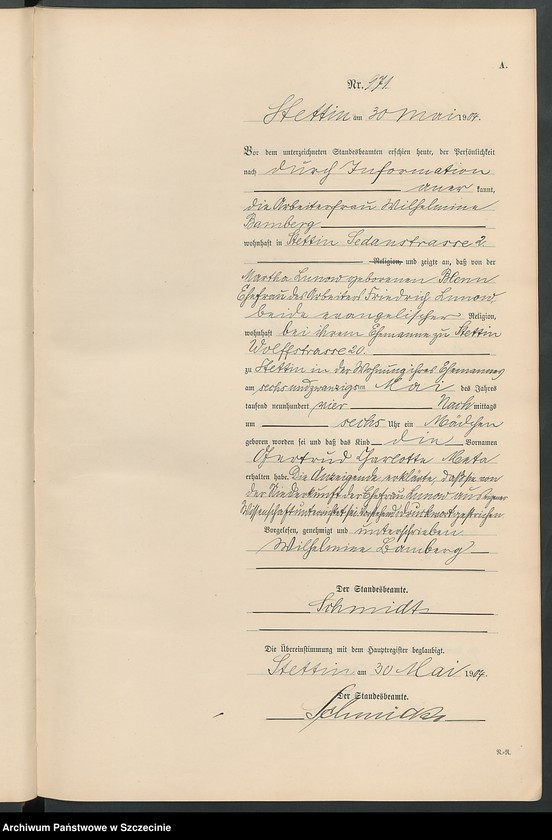 A.
Nr. 971
Stettin am 30 Mai 1904.
Vor dem unterzeichneten Standesbeamten erschien heute, der Persönlichkeit
nach durch Information
aner kannt,
die Arbeiterfrau Wilhelmine
Bamberg
wohnhaft in Stettin Sedanstrasse 2.
Religion, und zeigte an, daß von der
Martha Lunow geborenen Blenn
Ehefrau des Arbeiters Friedrich Lunow,
beide evangelischer Religion,
wohnhaft bei ihrem Ehemanne zu Stettin
Wolffstrasse 20.
zu Stettin in der Wohnung ihres Ehemannes
am sechsundzwanzigsten Mai des Jahres
tausend neunhundert vier Nach mittags
um sechs Uhr ein Mädchen
geboren worden sei und daß das Kind die Vornamen
Gertrud Charlotte Meta
erhalten habe. Die Anzeigende erklärte, daß sie von
der Niederkunft der Ehefrau Lunow aus eigener
Wissenschaft unterrichtet sei. Vorstehend 1 Druckwort gestrichen
Vorgelesen, genehmigt und unterschrieben
Wilhelmine Bamberg
Der Standesbeamte.
Schmidt
Die Übereinstimmung mit dem Hauptregister beglaubigt.
Stettin am 30 Mai 1904.
Der Standesbeamte.
Schmidt
N.-R.
Archiwum Państwowe w Szczecinie